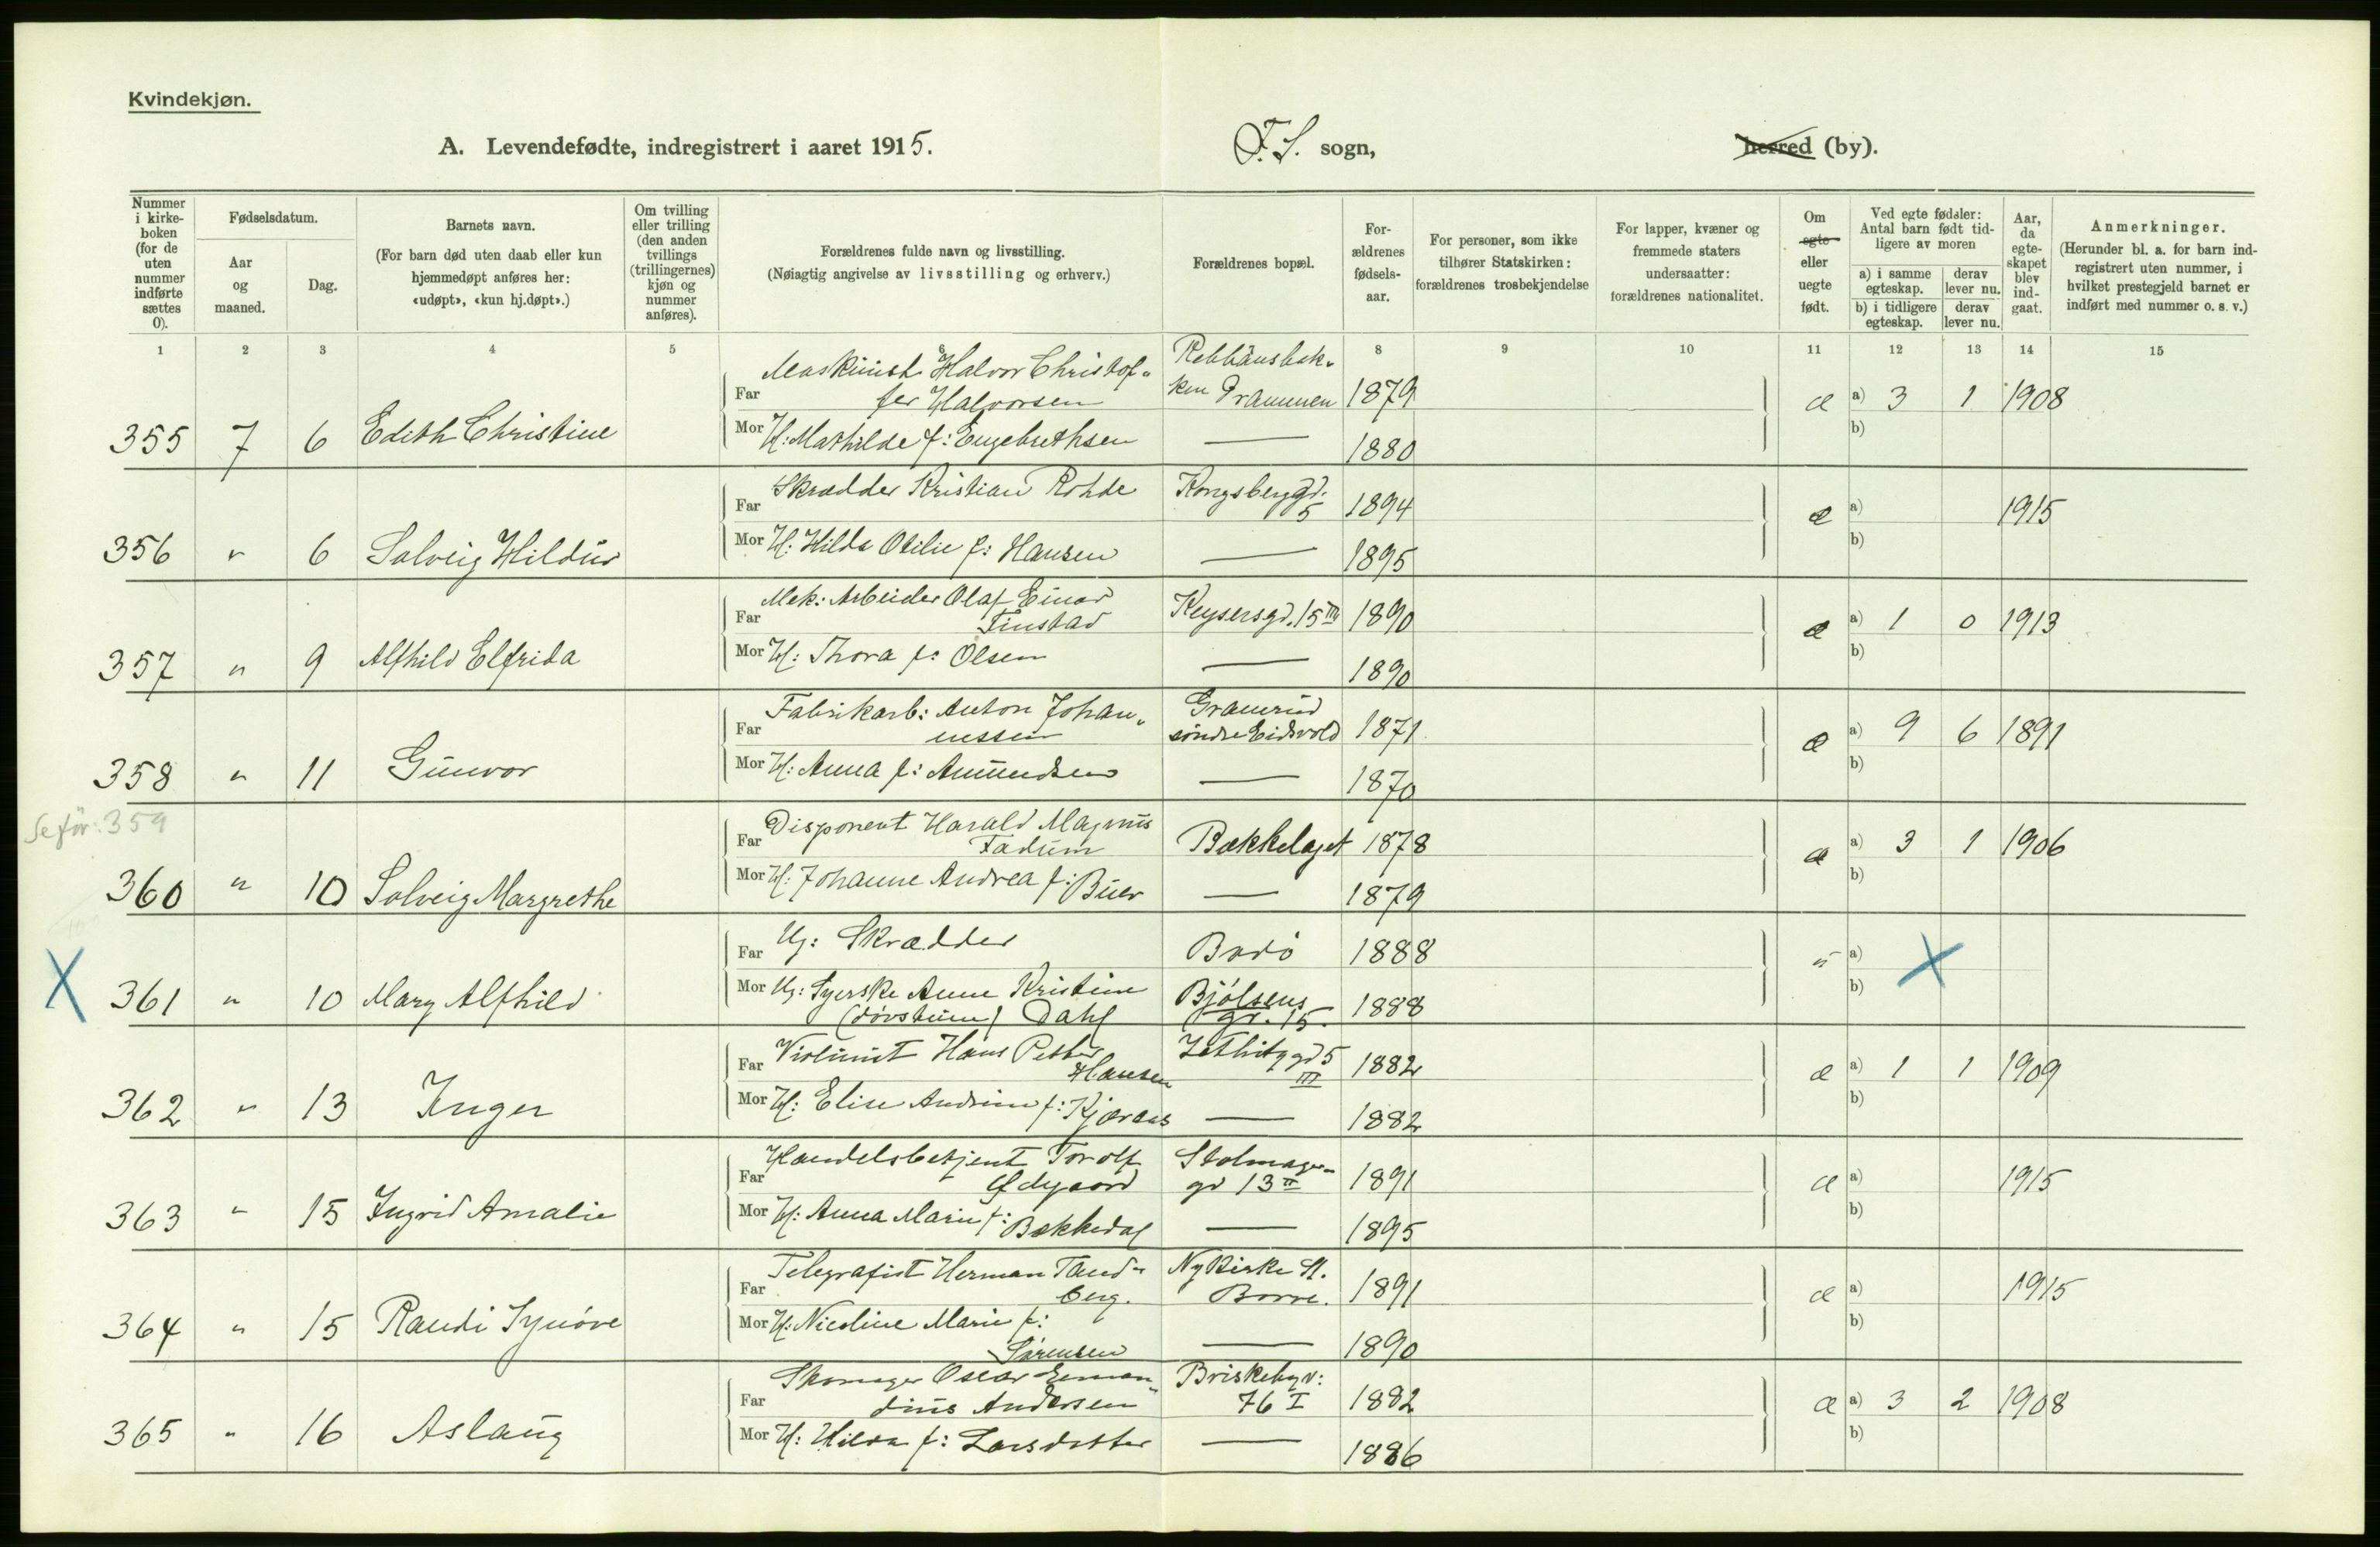 Kvindekjøn.
A. Levendefødte, indregistrert i aaret 1915.
F. S. sogn,
herred (by).
Nummer i kirke-boken (for de uten nummer indførte sættes 0).
Fødselsdatum.
Aar og maaned.
Dag.
Barnets navn.
(For barn død uten daab eller kun hjemmedøpt anføres her: «udøpt», «kun hj.døpt».)
Om tvilling eller trilling (den anden tvillings (trillingernes) kjøn og nummer anføres).
Forældrenes fulde navn og livsstilling.
(Nøiagtig angivelse av livsstilling og erhverv.)
Forældrenes bopæl.
For-ældrenes fødsels-aar.
For personer, som ikke tilhører Statskirken: forældrenes trosbekjendelse
For lapper, kvæner og fremmede staters undersaatter: forældrenes nationalitet.
Om egte eller uegte født.
Ved egte fødsler: Antal barn født tid-ligere av moren
a) i samme egteskap.
derav lever nu.
b) i tidligere egteskap.
derav lever nu.
Aar, da egte-skapet blev ind-gaat.
Anmerkninger.
(Herunder bl. a. for barn ind-registrert uten nummer, i hvilket prestegjeld barnet er indført med nummer o. s. v.)
1 2 3 4 5 6 8 9 10 11 12 13 14 15
Far Maskinist Halvor Christof-
fer Halvorsen
ken Drammen 1879 æ a) 3 1 1908
355 7 6 Edith Christine
Mor H: Mathilde f: Engebrethsen — 1880 b)
Far Skrædder Kristian Rohde Kongsberggd. 5 1894 æ a) 1915
356 " 6 Solveig Hildur
Mor H: Hilda Otilie f: Hansen — 1895 b)
Far Mek: Arbeider Olaf Einar
Finstad Keysersgd. 15 III 1890 æ a) 1 0 1913
357 " 9 Alfhild Elfrida
Mor H: Thora f: Olsen — 1890 b)
Far Fabrikarb: Anton Johan-
nessen søndre Eidsvold 1871 æ a) 9 6 1891
358 " 11 Gunvor
Mor H: Anna f: Amundsen — 1870 b)
Se før: 359
Far Disponent Harald Magnus
Fadum Bækkelaget 1878 æ a) 3 1 1906
360 " 10 Solveig Margrethe
Mor H: Johanne Andrea f: Buer — 1879 b)
Far Ug: Skrædder Bodø 1888 u a) X
X 361 " 10 Mary Alfhild
Mor Ug: Syerske Anne Kristine
(døvstum) Dahl Bjølsens
gd. 15. 1888 b)
Far Violinist Hans Petter
Hansen 5 III 1882 æ a) 1 1 1909
362 " 13 Inger
Mor H: Elise f: — 1882 b)
Far Handelsbetjent Torolf
Ødgaard
gd 13 II 1891 æ a) 1915
363 " 15 Ingrid Amalie
Mor H: Anna Marie f: Bækkedal — 1895 b)
Far Telegrafist Herman Tand-
berg. Nykirke St.
Borre. 1891 æ a) 1915
364 " 15 Randi Synøve
Mor H: Nicoline Marie f:
Sørensen — 1890 b)
Far Skomager Oscar Erman-
dius Andersen Briskebyv:
76 I 1882 æ a) 3 2 1908
365 " 16 Aslaug
Mor H: Hilda f: Larsdatter — 1886 b)